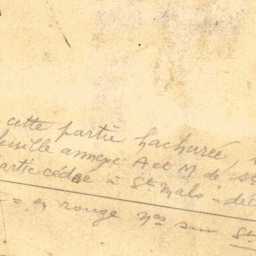 cette partie hachurée,
feuille annexe A et M de St
partie cédée à St Malo - déc
= en rouge Nos sur St